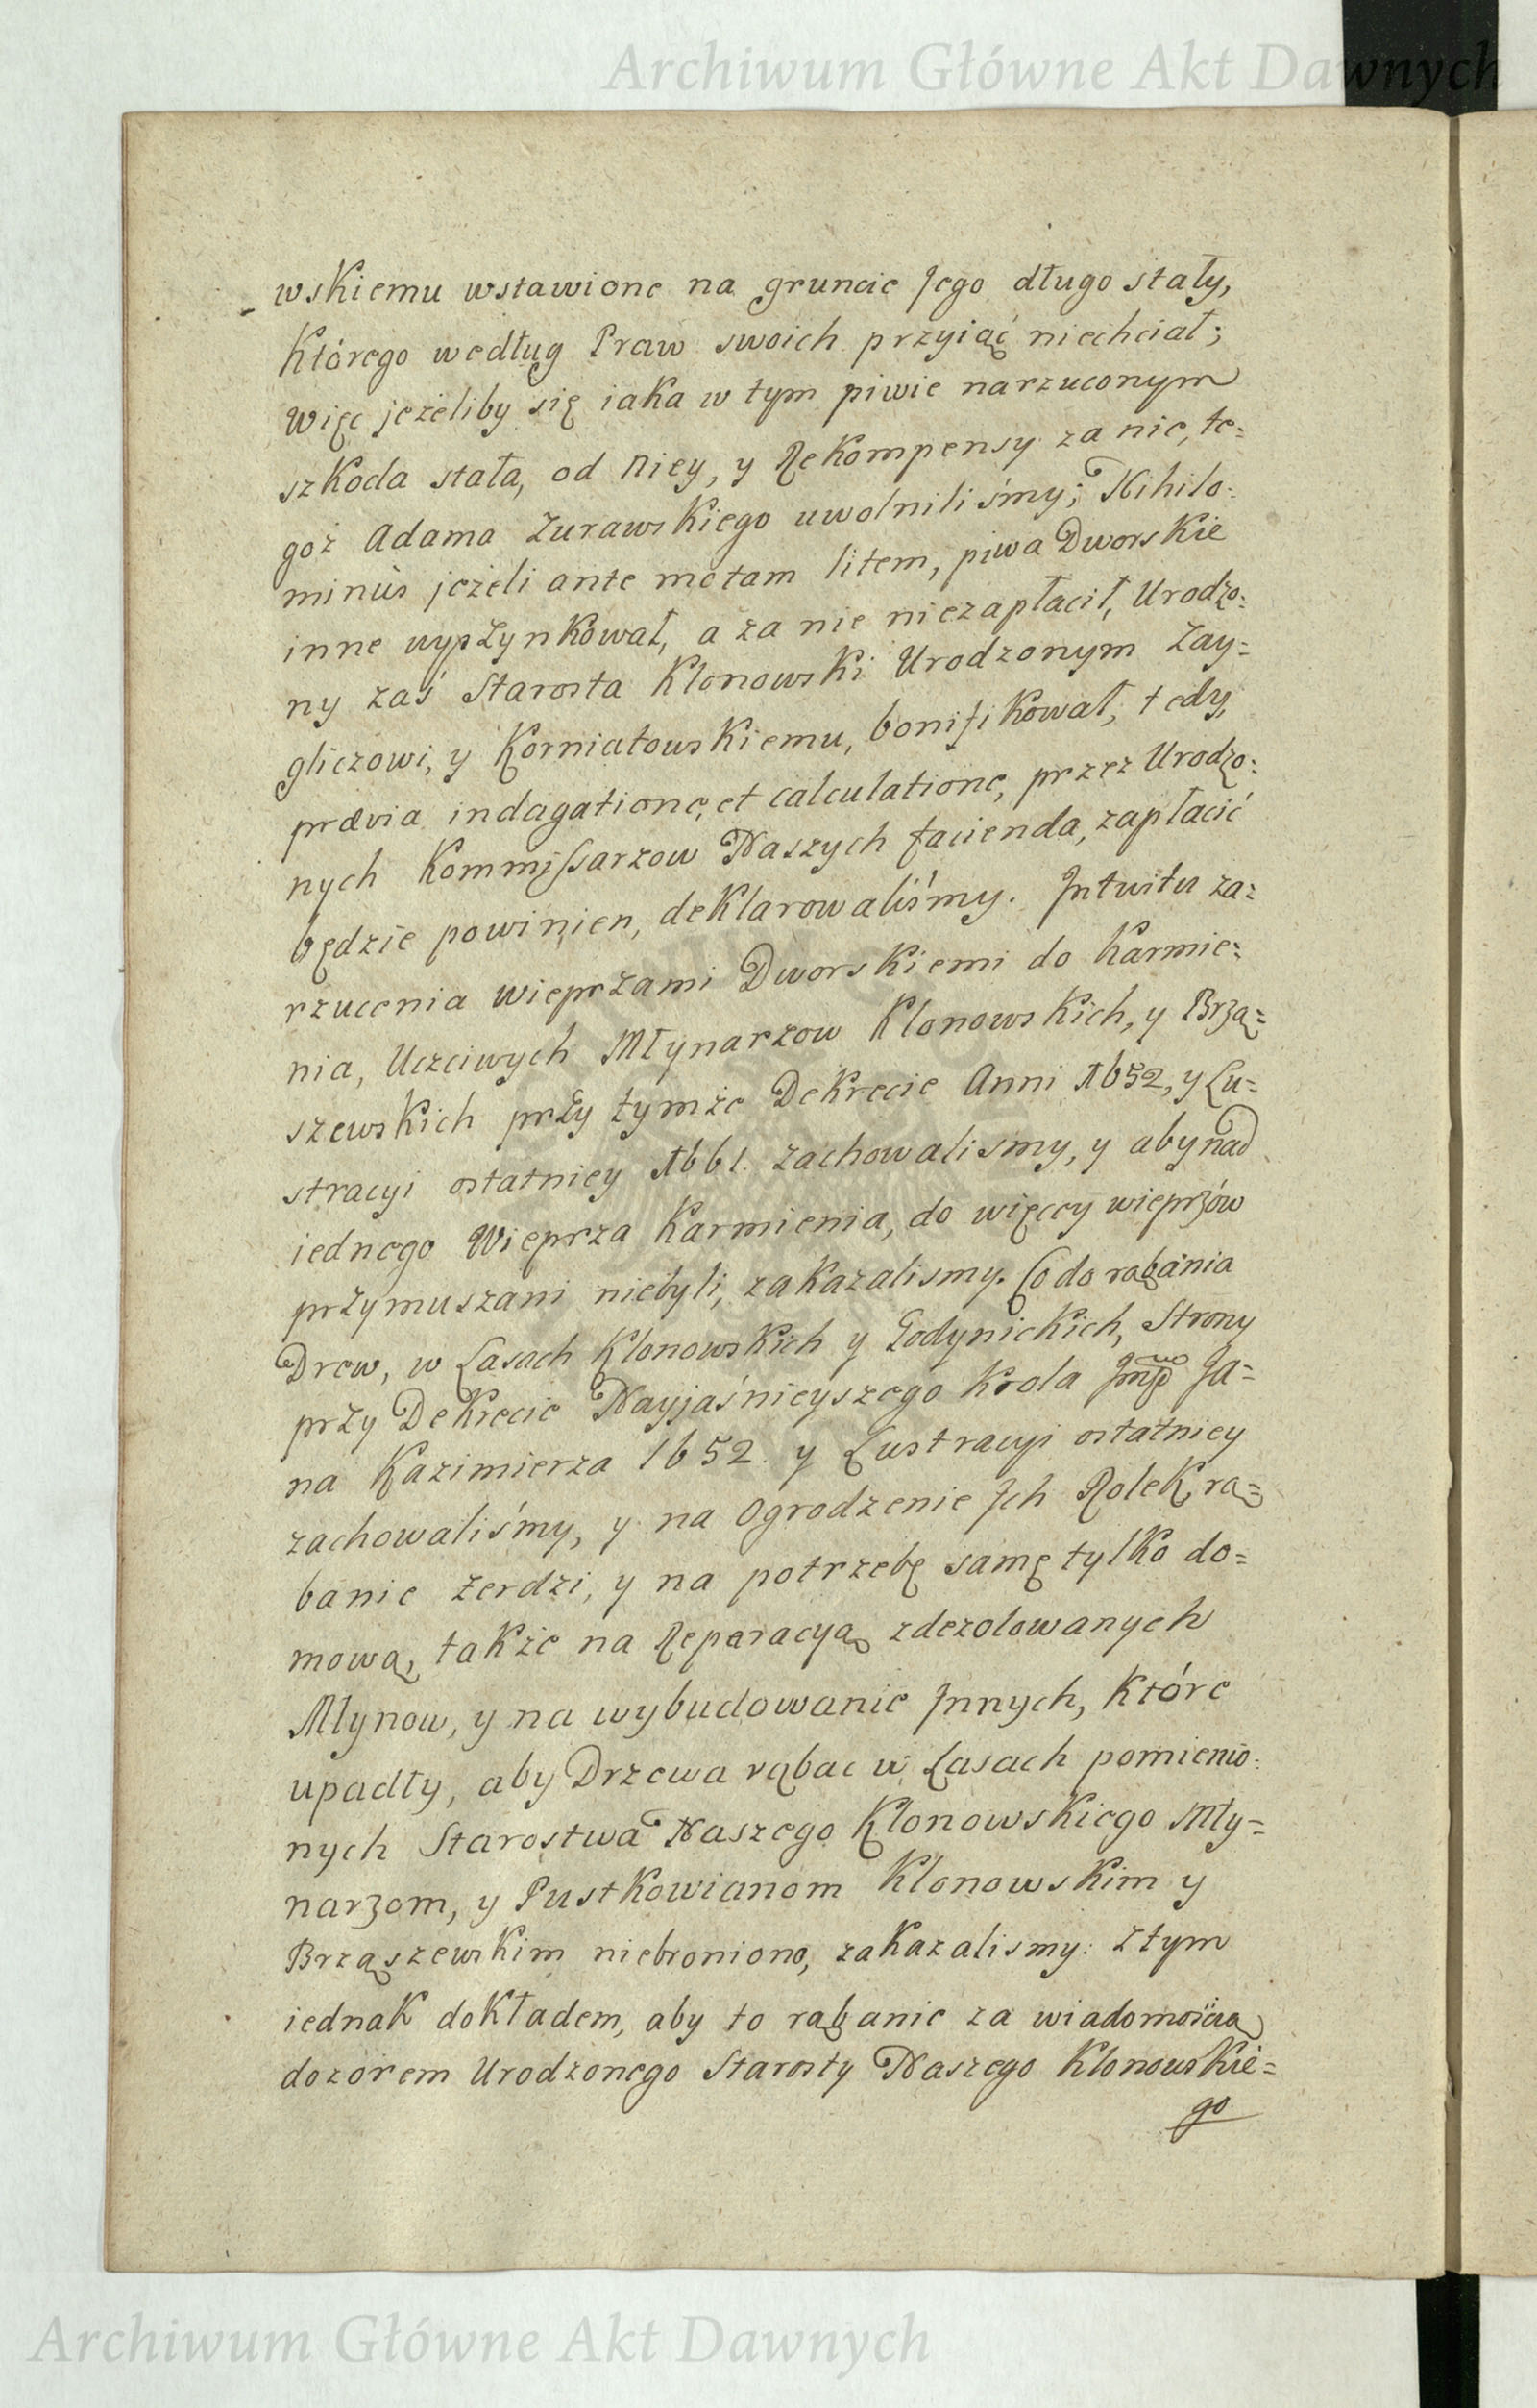 Archiwum Główne Akt Dawnych
wskiemu wstawione na gruncie Jego długo stały,
Którego według Praw swoich przyiąć niechciał;
Więc jeżeliby się iaka w tym piwie narzuconym
szkoda stała, od Niey, y Rekompensy za nie, te=
goż Adama Zurawskiego uwolniliśmy; Nihilo:
minus jeżeli ante motam litem, piwa Dworskie
inne wyszynkował, a za nie niezapłacił, Urodzo:
ny zaś Starosta Klonowski Urodzonym Zay=
gliczowi, y Korniatowskiemu, bonifikował, tedy,
prævia indagatione, et calculatione, przez Urodzo:
nych Kommissarzow Naszych facienda, zapłacić
będzie powinien, deklarowaliśmy. Intuitu za:
rzucenia wieprzami Dworskiemi do Karmie:
nia, Uczciwych Młynarzow Klonowskich, y Brzą=
szewskich przy tymże Dekrecie Anni 1652, y Lu=
stracyi ostatniey 1661. zachowalismy, y aby nad
iednego Wieprza Karmienia, do więcey wieprzów
przymuszani niebyli, zakazalismy. Co do rąbania
Drew, w Lasach Klonowskich y Godynickich, Strony
przy Dekrecie Nayjaśnieyszego Krola Jmp Ja=
na Kazimierza 1652. y Lustracyi ostatniey
zachowaliśmy, y na Ogrodzenie Ich Rolek, rą=
banie żerdzi, y na potrzebę samę tylko do=
mową, także na Reparacyą zdezolowanych
Młynow, y na wybudowanie Innych, Które
upadły, aby Drzewa rąbac w Lasach pomienio:
nych Starostwa Naszego Klonowskiego Mły=
narzom, y Pustkowianom Klonowskim y
Brząszewskim niebroniono, zakazalismy: Ztym
iednak dokładem, aby to rąbanie za wiadomością
dozorem Urodzonego Starosty Naszego Klonowskie=
go
Archiwum Główne Akt Dawnych